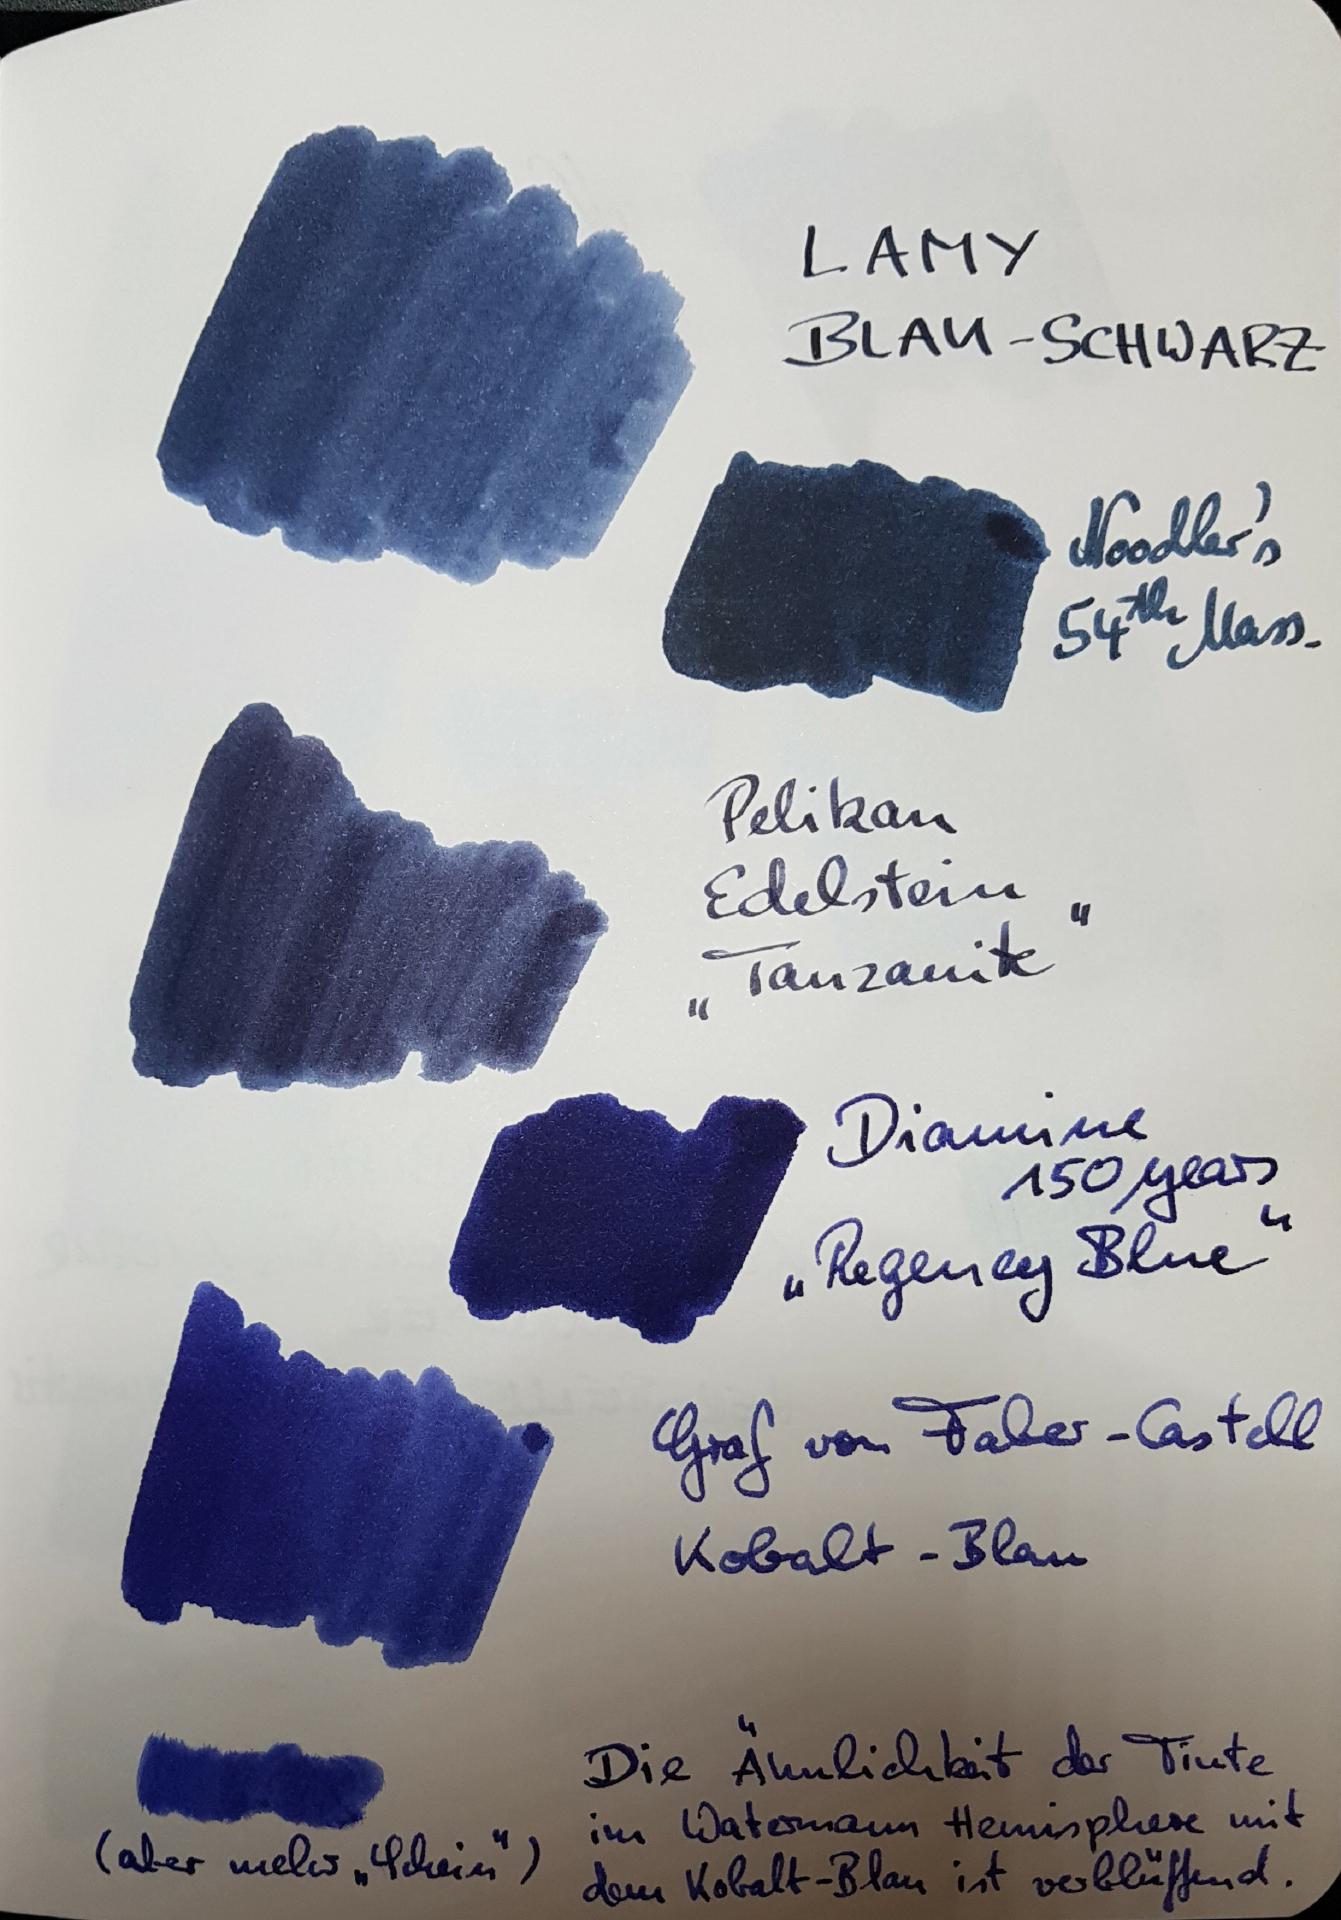 LAMY
BLAU-SCHWARZ
Noodler's
54th Mass.
Pelikan
Edelstein
„Tanzanite“
Diamine
150 years
„Regency Blue“
Graf von Faber-Castell
Kobalt-Blau
Die Ähnlichkeit der Tinte
im Watermann Hemisphere mit
dem Kobalt-Blau ist verblüffend.
(aber mehr „Schein“)